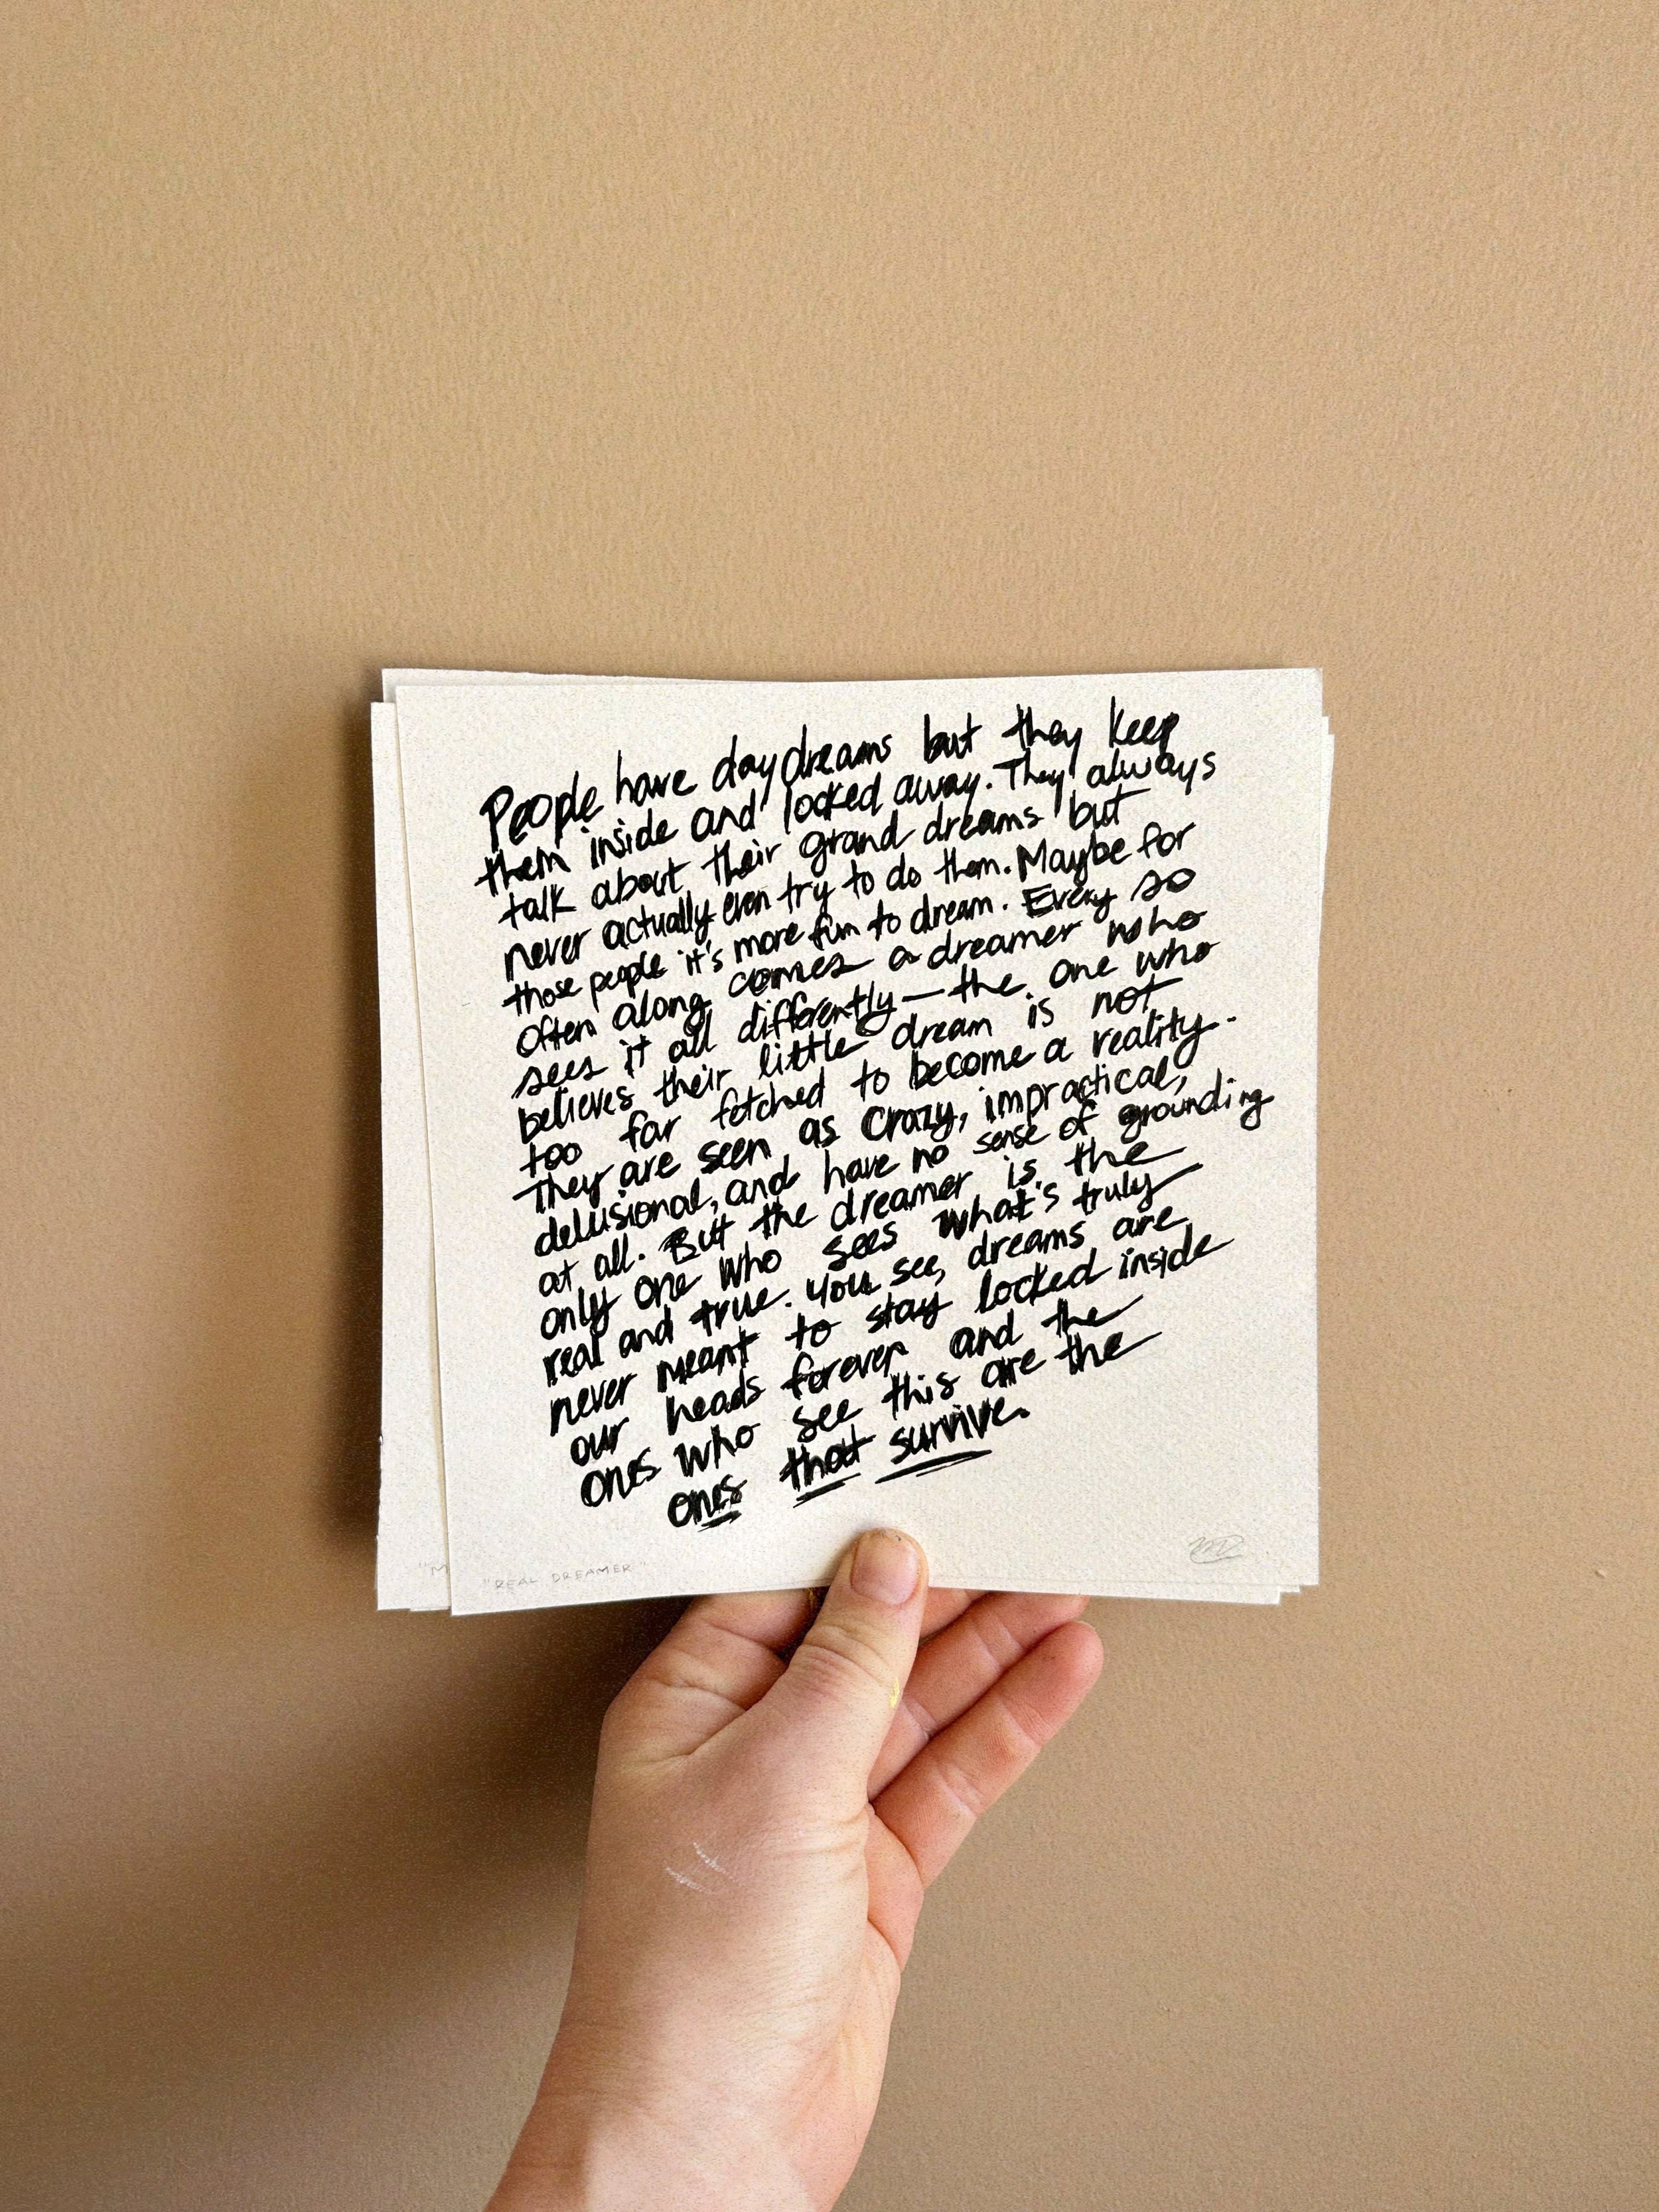 People have daydreams but they keep
them inside and locked away. They always
talk about their grand dreams but
never actually even try to do them. Maybe for
those people it's more fun to dream. Every so
often along comes a dreamer who
sees it all differently — the one who
believes their little dream is not
too far fetched to become a reality.
They are seen as crazy, impractical,
delusional, and have no sense of grounding
at all. But the dreamer is the
only one who sees what's truly
real and true. You see, dreams are
never meant to stay locked inside
our heads forever and the
ones who see this are the
ones that survive.
"REAL DREAMER"
"M